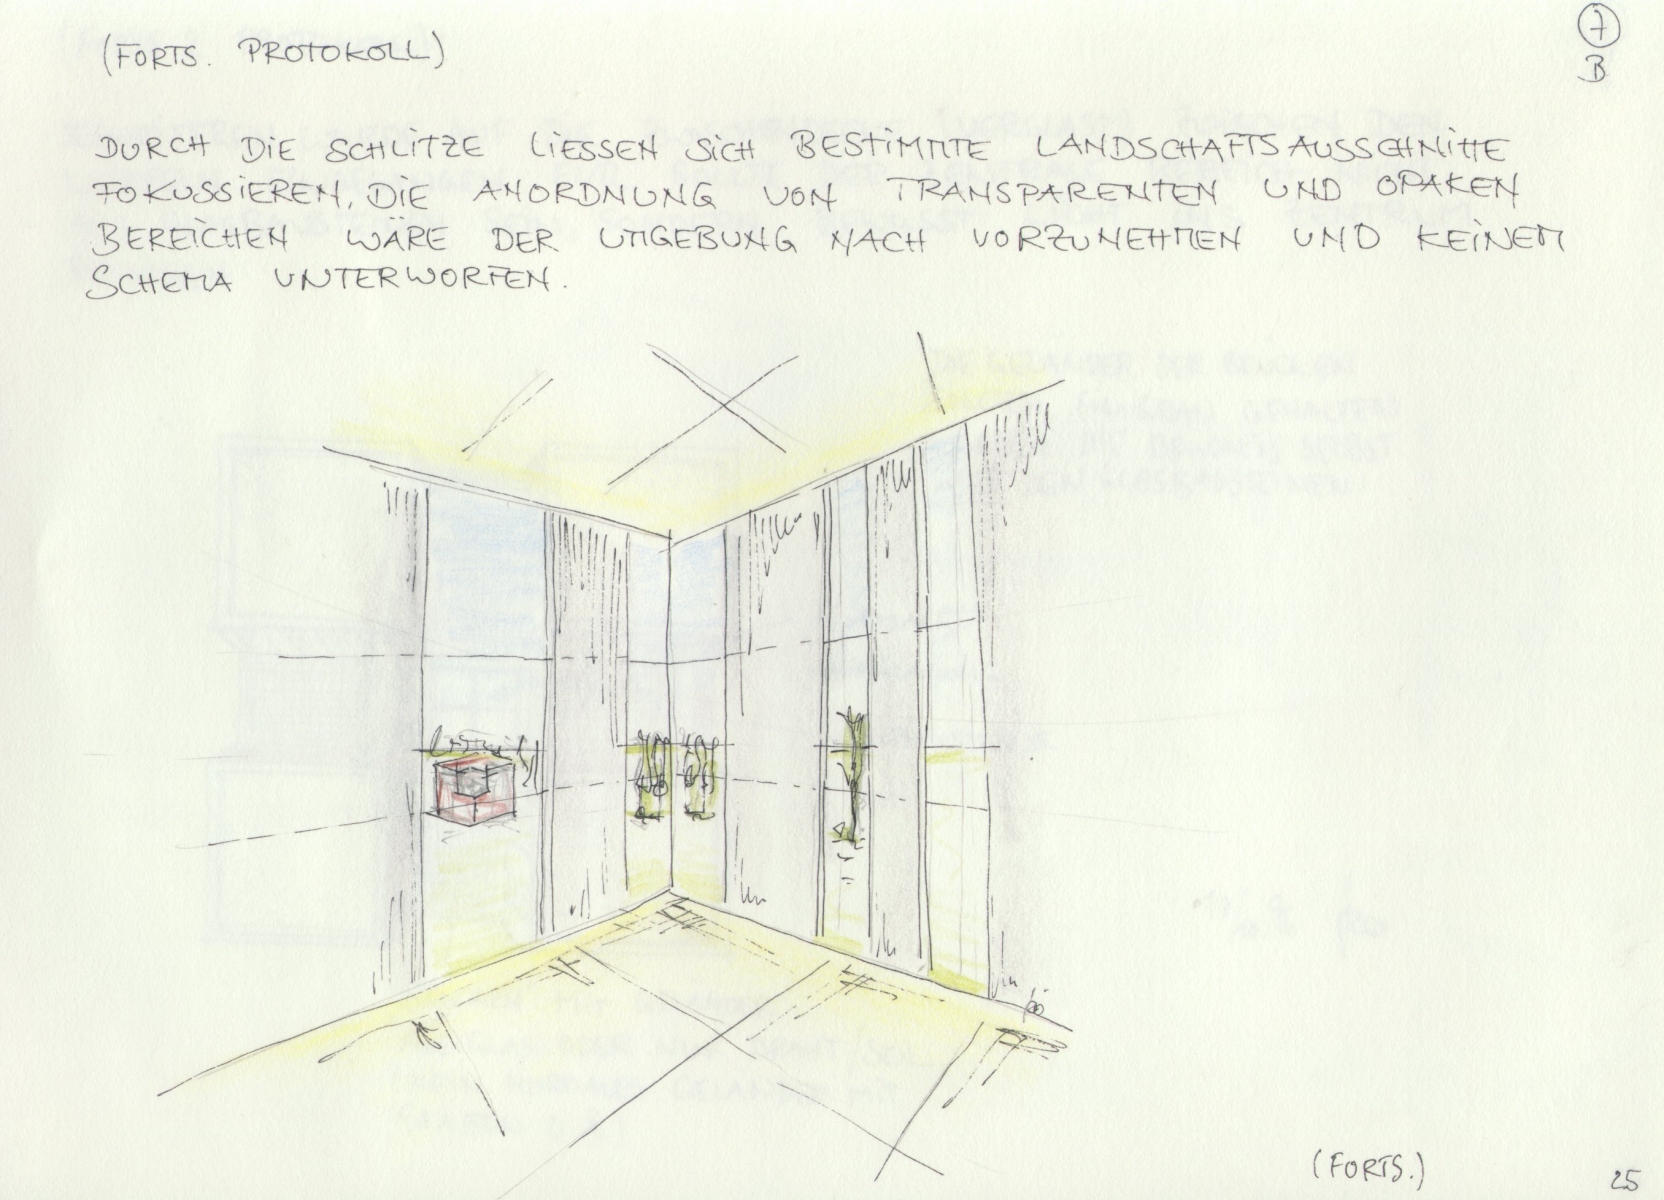 (FORTS. PROTOKOLL)
7
B
DURCH DIE SCHLITZE LIESSEN SICH BESTIMMTE LANDSCHAFTSAUSSCHNITTE
FOKUSSIEREN, DIE ANORDNUNG VON TRANSPARENTEN UND OPAKEN
BEREICHEN WÄRE DER UMGEBUNG NACH VORZUNEHMEN UND KEINEM
SCHEMA UNTERWORFEN.
(FORTS.)
25